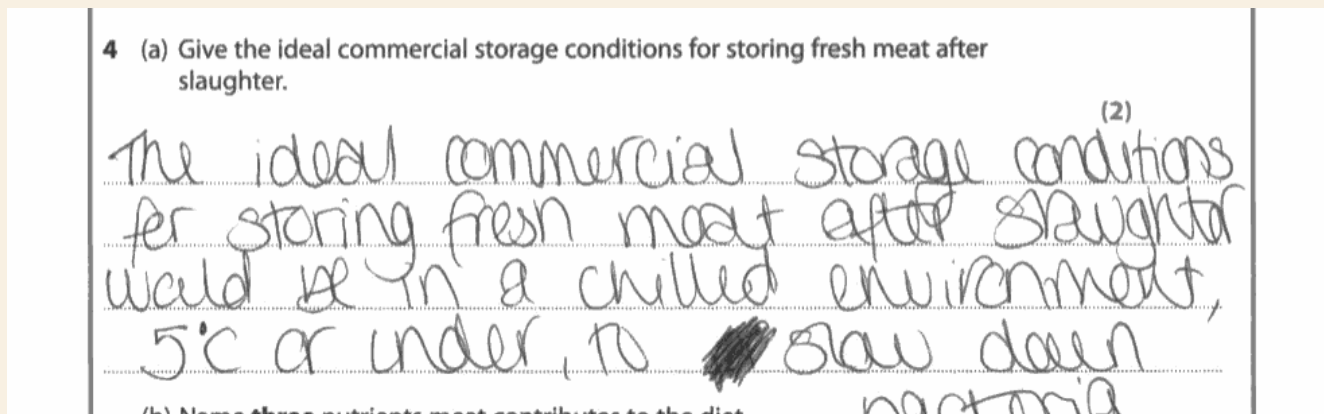 4 (a) Give the ideal commercial storage conditions for storing fresh meat after
slaughter.
(2)
The ideal commercial storage conditions
for storing fresh meat after slaughter
would be in a chilled environment,
5°C or under, to slow down
bacteria
(b) Name three nutrients meat contributes to the diet